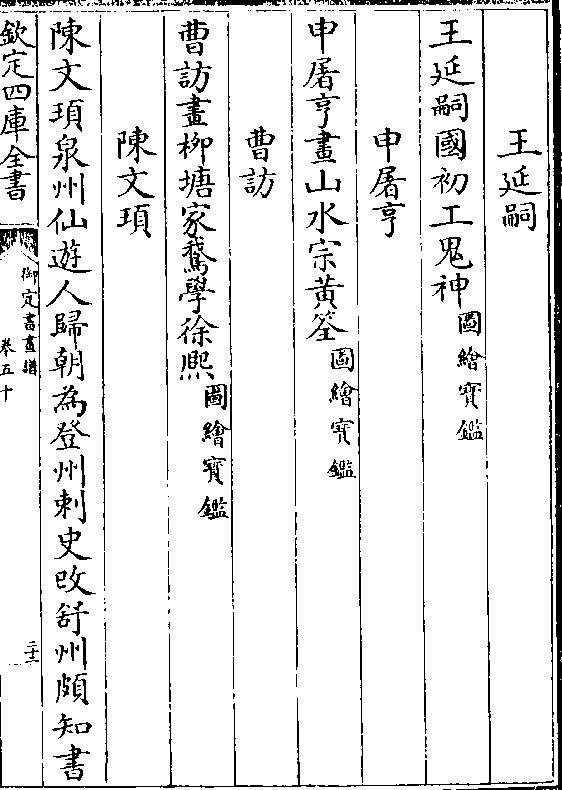 王延嗣
王延嗣國初工鬼神圖繪寶鑑
申屠亨
申屠亨畫山水宗黃筌圖繪寶鑑
曹訪
曹訪畫柳塘家鵞學徐熙圖繪寶鑑
陳文頊
陳文頊泉州仙遊人歸朝為登州刺史改舒州頗知書
欽定四庫全書
御定書畫譜
卷五十
二十三